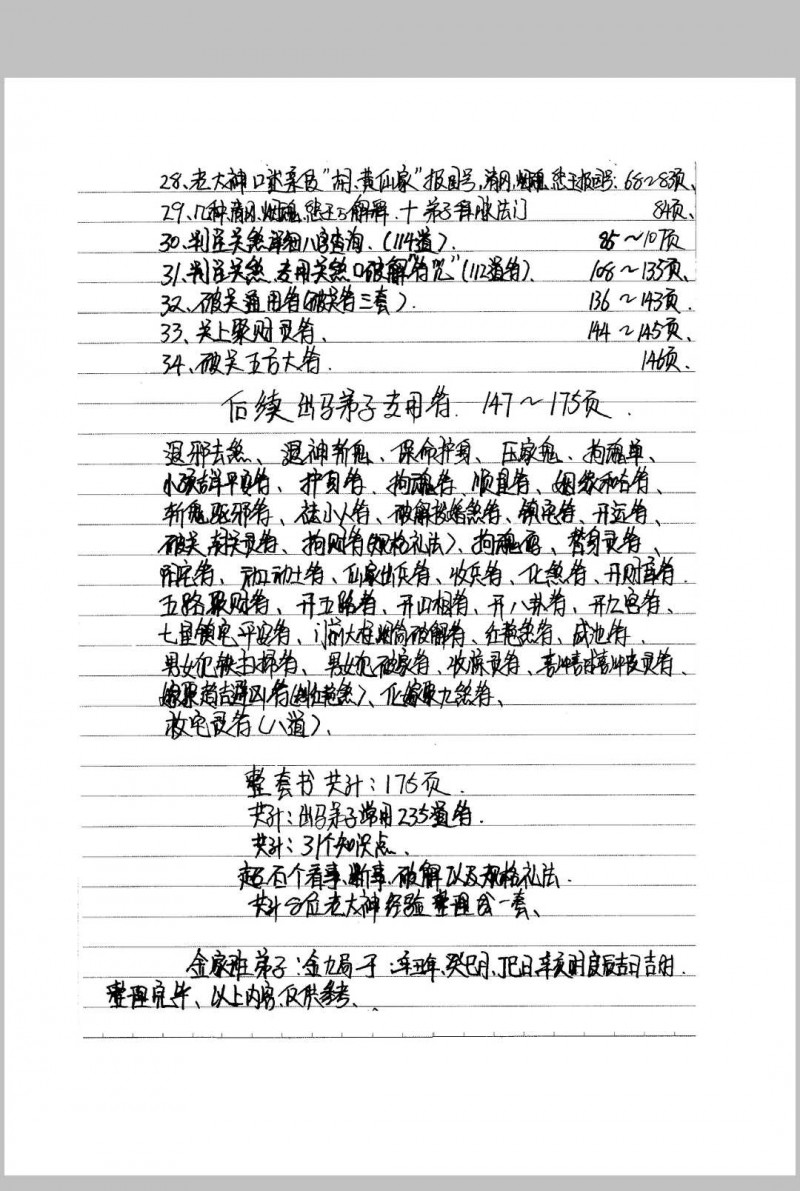 28、老大神口述亲段"胡、黄仙家"报国号,清风,烟魂,悲王报国号. 68~83页、
29、几种清风、烟魂、悲王的解释. 十 弟子串脉法门 84页、
30、判定关煞详细八字查询、(114道)、 85~107页
31、判定关煞、专用关煞口破解"符咒"(112道符)、 108~135页、
32、破关通用符(破关符三套)、 136~143页、
33、关上聚财灵符、 144~145页、
34、破关五方大符、 146页、
后续 出马弟子专用符. 147~175页.
退邪去煞、退神斩鬼、保命护身、压家鬼、拘魂单、
小孩吉祥平安符、护身符、拘魂符、顺星符、姻缘和合符、
斩鬼驱邪符、祛小人符、破解披婚煞符、镇宅符、开运符、
破关、闭关灵符、拘财符(规格礼法)、拘魂、替身灵符、
阴宅符、动工动土符、仙家出兵符、收兵符、化煞符、开财库符.
五路聚财符、开五路符、开山根符、开八卦符、开九宫符、
七星镇宅平安符、门前大树烟筒破解符、红艳煞符、咸池符.
男女犯铁扫帚符、男女犯破家符、收惊灵符、
嫁娶趋吉避凶符(红艳煞)、化嫁娶九煞符、
改宅灵符(八道)、
整套书 共计:175页.
共计:出马弟子常用235道符.
共计:31个知识点、
超百个看事、断事、破解以及规格礼法.
共计8位老大神经验整理成一套、
金家班弟子:金九局 于:辛丑年、癸巳月、丁巳日、辛亥时良辰吉日吉时.
整理完毕、以上内容,仅供参考、